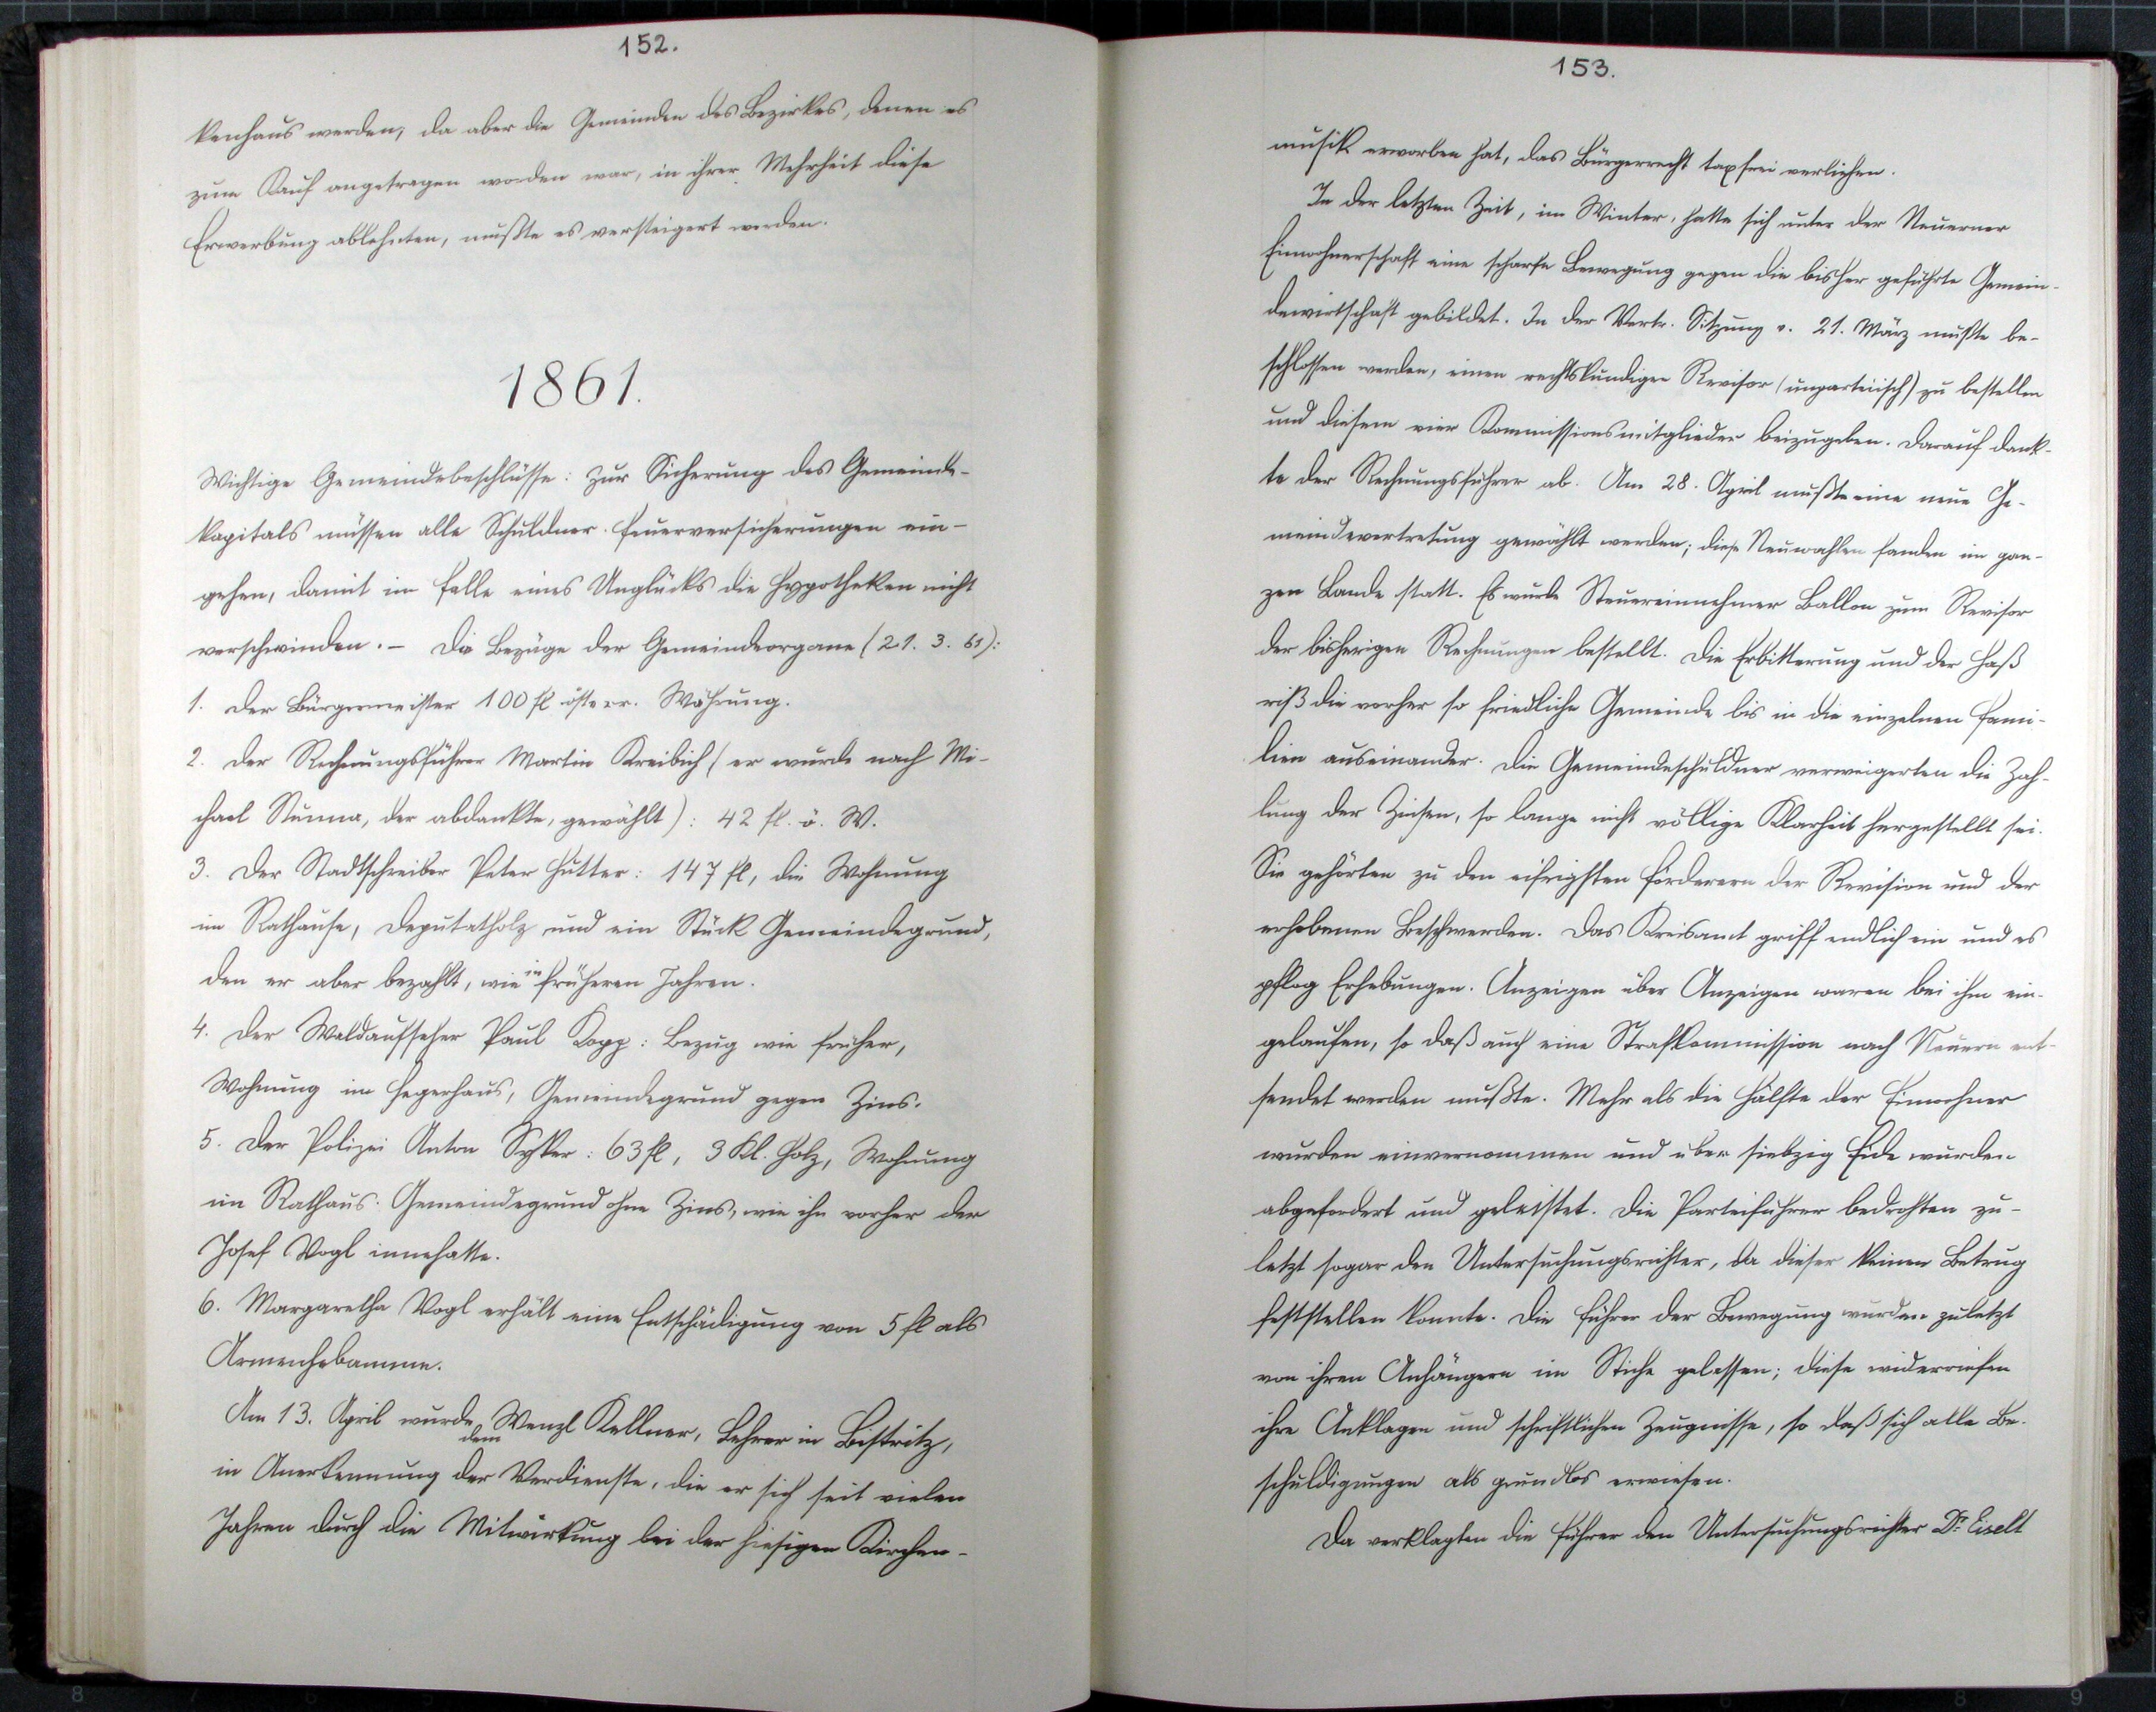 152.
kenhaus werden, da aber die Gemeinden des Bezirkes, denen es
zum Kauf angetragen worden war, in ihrer Mehrheit diese
Erwerbung ablehnten, mußte es versteigert werden.
1861.
Wichtige Gemeindebeschlüsse: Zur Sicherung des Gemeinde-
kapitals müssen alle Schuldner Feuerversicherungen ein-
gehen, damit im Falle eines Unglücks die Hypotheken nicht
verschwinden. – Die Bezüge der Gemeindeorgane (21. 3. 61):
1. Der Bürgermeister 100 fl österr. Währung.
2. Der Rechnungsführer Martin Kreibich (er wurde nach Mi-
chael Stunna, der abdankte, gewählt): 42 fl. ö. W.
3. Der Stadtschreiber Peter Hutter: 147 fl, die Wohnung
im Rathause, Deputatholz und ein Stück Gemeindegrund,
den er aber bezahlt, wie in früheren Jahren.
4. Der Waldaufseher Paul Kopp: Bezug wie früher,
Wohnung im Hegerhaus, Gemeindegrund gegen Zins.
5. Der Polizei Anton : 63 fl, 3 Kl. Holz, Wohnung
im Rathaus: Gemeindegrund ohne Zins, wie ihn vorher der
Josef Vogl innehatte.
6. Margaretha Vogl erhält eine Entschädigung von 5 fl als
Armenhebamme.
Am 13. April wurde dem Wenzl Kellner, Lehrer in Bistritz,
in Anerkennung der Verdienste, die er sich seit vielen
Jahren durch die Mitwirkung bei der hiesigen Kirchen-
153.
musik erworben hat, das Bürgerrecht taxfrei verliehen.
In der letzten Zeit, im Winter, hatte sich unter der Neuerner
Einwohnerschaft eine scharfe Bewegung gegen die bisher geführte Gemein-
dewirtschaft gebildet. In der Vertr. Sitzung v. 21. März mußte be-
schlossen werden, einen rechtskundigen Revisor (unparteiisch) zu bestellen
und diesem vier Kommissionsmitglieder beizugeben. Darauf dank-
te der Rechnungsführer ab. Am 28. April mußte eine neue Ge-
meindevertretung gewählt werden; diese Neuwahlen fanden im gan-
zen Lande statt. Es wurde Steuereinnehmer Ballon zum Revisor
der bisherigen Rechnungen bestellt. Die Erbitterung und der Haß
riß die vorher so friedliche Gemeinde bis in die einzelnen Fami-
lien auseinander. Die Gemeindeschuldner verweigerten die Zah-
lung der Zinsen, so lange nicht völlige Klarheit hergestellt sei.
Sie gehörten zu den eifrigsten Förderern der Revision und der
erhobenen Beschwerden. Das Kreisamt griff endlich ein und es
pflog Erhebungen. Anzeigen über Anzeigen waren bei ihm ein-
gelaufen, so daß auch eine Strafkommission nach Neuern ent-
sendet werden mußte. Mehr als die Hälfte der Einwohner
wurden einvernommen und über siebzig Eide wurden
abgefordert und geleistet. Die Parteiführer bedrohten zu-
letzt sogar den Untersuchungsrichter, da dieser keinen Betrug
feststellen konnte. Die Führer der Bewegung wurden zuletzt
von ihren Anhängern im Stiche gelassen; diese widerriefen
ihre Anklagen und schriftlichen Zeugnisse, so daß sich alle Be-
schuldigungen als grundlos erwiesen.
Da verklagten die Führer den Untersuchungsrichter Dr. Eiselt